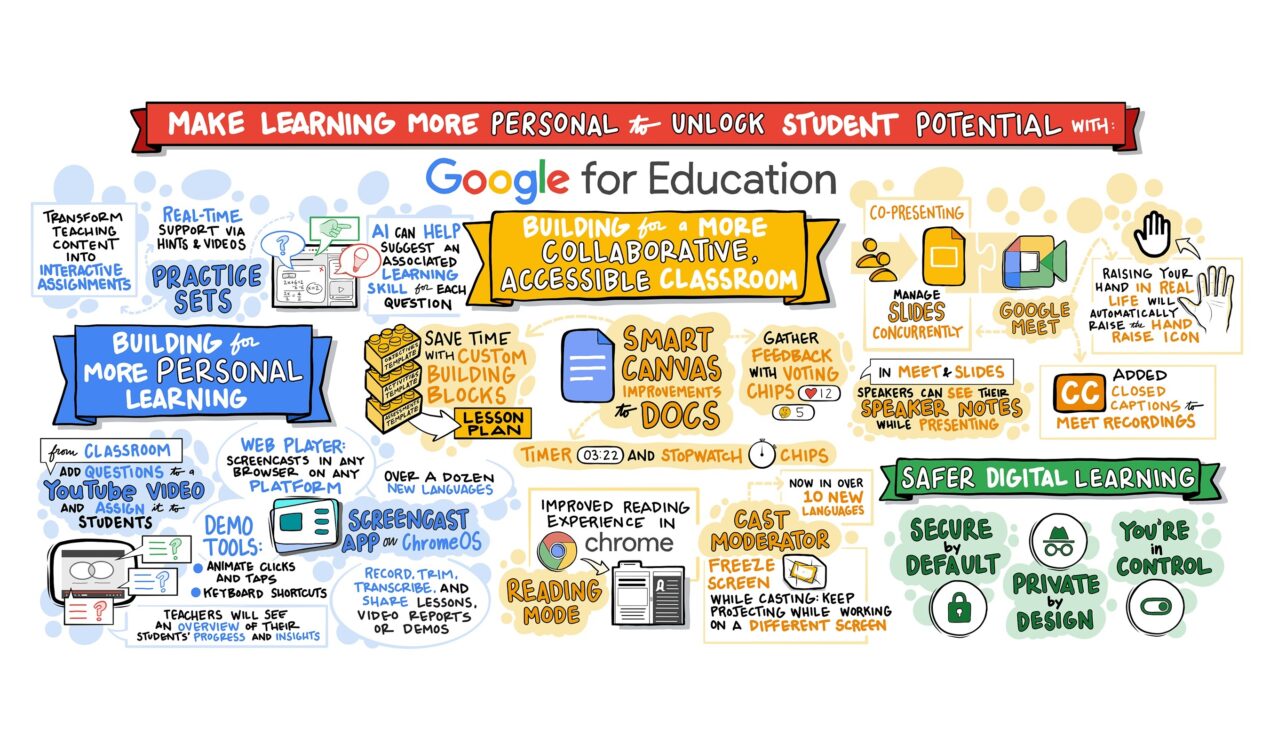 MAKE LEARNING MORE PERSONAL to UNLOCK STUDENT POTENTIAL WITH:
Google for Education
TRANSFORM
TEACHING
CONTENT
INTO
INTERACTIVE
ASSIGNMENTS
REAL-TIME
SUPPORT VIA
HINTS & VIDEOS
PRACTICE
SETS
AI CAN HELP
SUGGEST AN
ASSOCIATED
LEARNING
SKILL for EACH
QUESTION
BUILDING for
MORE PERSONAL
LEARNING
from CLASSROOM
ADD QUESTIONS to a
YouTube VIDEO
AND ASSIGN it to
STUDENTS
TEACHERS WILL SEE
AN OVERVIEW OF THEIR
STUDENTS' PROGRESS AND INSIGHTS
WEB PLAYER:
SCREENCASTS IN ANY
BROWSER ON ANY
PLATFORM
OVER A DOZEN
NEW LANGUAGES
SCREENCAST
APP on ChromeOS
DEMO
TOOLS:
ANIMATE CLICKS
AND TAPS
KEYBOARD SHORTCUTS
RECORD, TRIM,
TRANSCRIBE, AND
SHARE LESSONS,
VIDEO REPORTS
OR DEMOS
BUILDING for a MORE
COLLABORATIVE,
ACCESSIBLE CLASSROOM
OBJECTIVES
TEMPLATE
ACTIVITIES
TEMPLATE
ASSESSMENTS
TEMPLATE
SAVE TIME
WITH CUSTOM
BUILDING
BLOCKS
LESSON
PLAN
SMART
CANVAS
IMPROVEMENTS
to DOCS
GATHER
FEEDBACK
WITH VOTING
CHIPS
12
5
TIMER 03:22 AND STOPWATCH CHIPS
IMPROVED READING
EXPERIENCE IN
chrome
READING
MODE
NOW IN OVER
10 NEW
LANGUAGES
CAST
MODERATOR
FREEZE
SCREEN
WHILE CASTING: KEEP
PROJECTING WHILE WORKING
ON A DIFFERENT SCREEN
CO-PRESENTING
MANAGE
SLIDES
CONCURRENTLY
GOOGLE
MEET
RAISING YOUR
HAND IN REAL
LIFE WILL
AUTOMATICALLY
RAISE the HAND
RAISE ICON
IN MEET & SLIDES
SPEAKERS CAN SEE THEIR
SPEAKER NOTES
WHILE PRESENTING
CC
ADDED
CLOSED
CAPTIONS to
MEET RECORDINGS
SAFER DIGITAL LEARNING
SECURE
by
DEFAULT
PRIVATE
by
DESIGN
YOU'RE
in
CONTROL